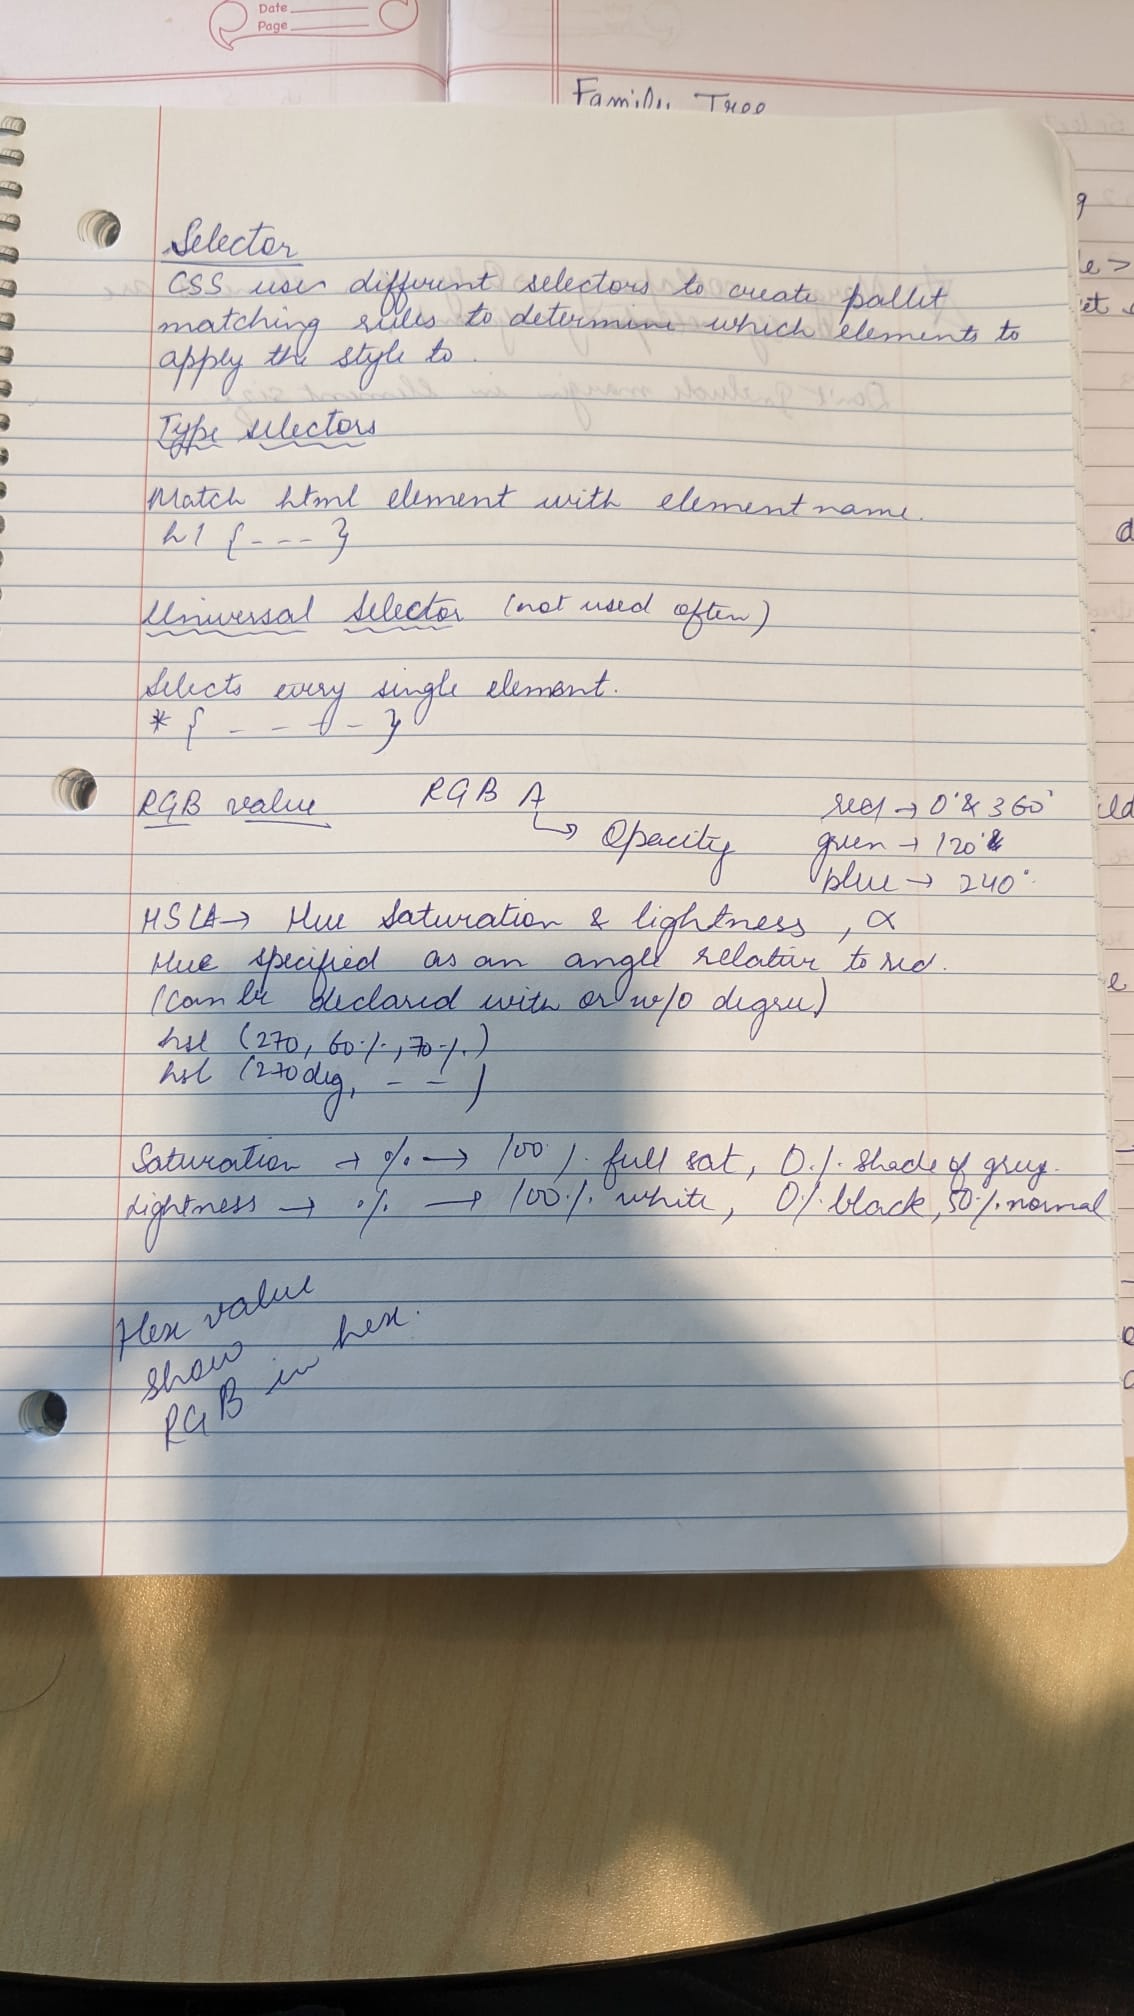 Date
Page
Family Tree
Selector
CSS uses different selectors to create pallet
matching rules to determine which elements to
apply the style to.
Type selectors
Match html element with element name.
h1 {---}
Universal Selector (not used often)
Selects every single element.
* { - - - - }
RGB value RGB A
↳ Opacity
red → 0° & 360°
green → 120°
blue → 240°.
HSLA → Hue Saturation & lightness, α
Hue specified as an angle relative to red.
(Can be declared with or w/o degree)
hsl (270, 60%, 70%.)
hsl (270deg, - - )
Saturation → % → 100% full sat, 0% shade of grey.
Lightness → % → 100% white, 0% black, 50% normal
Hex value
show
RGB in hex.